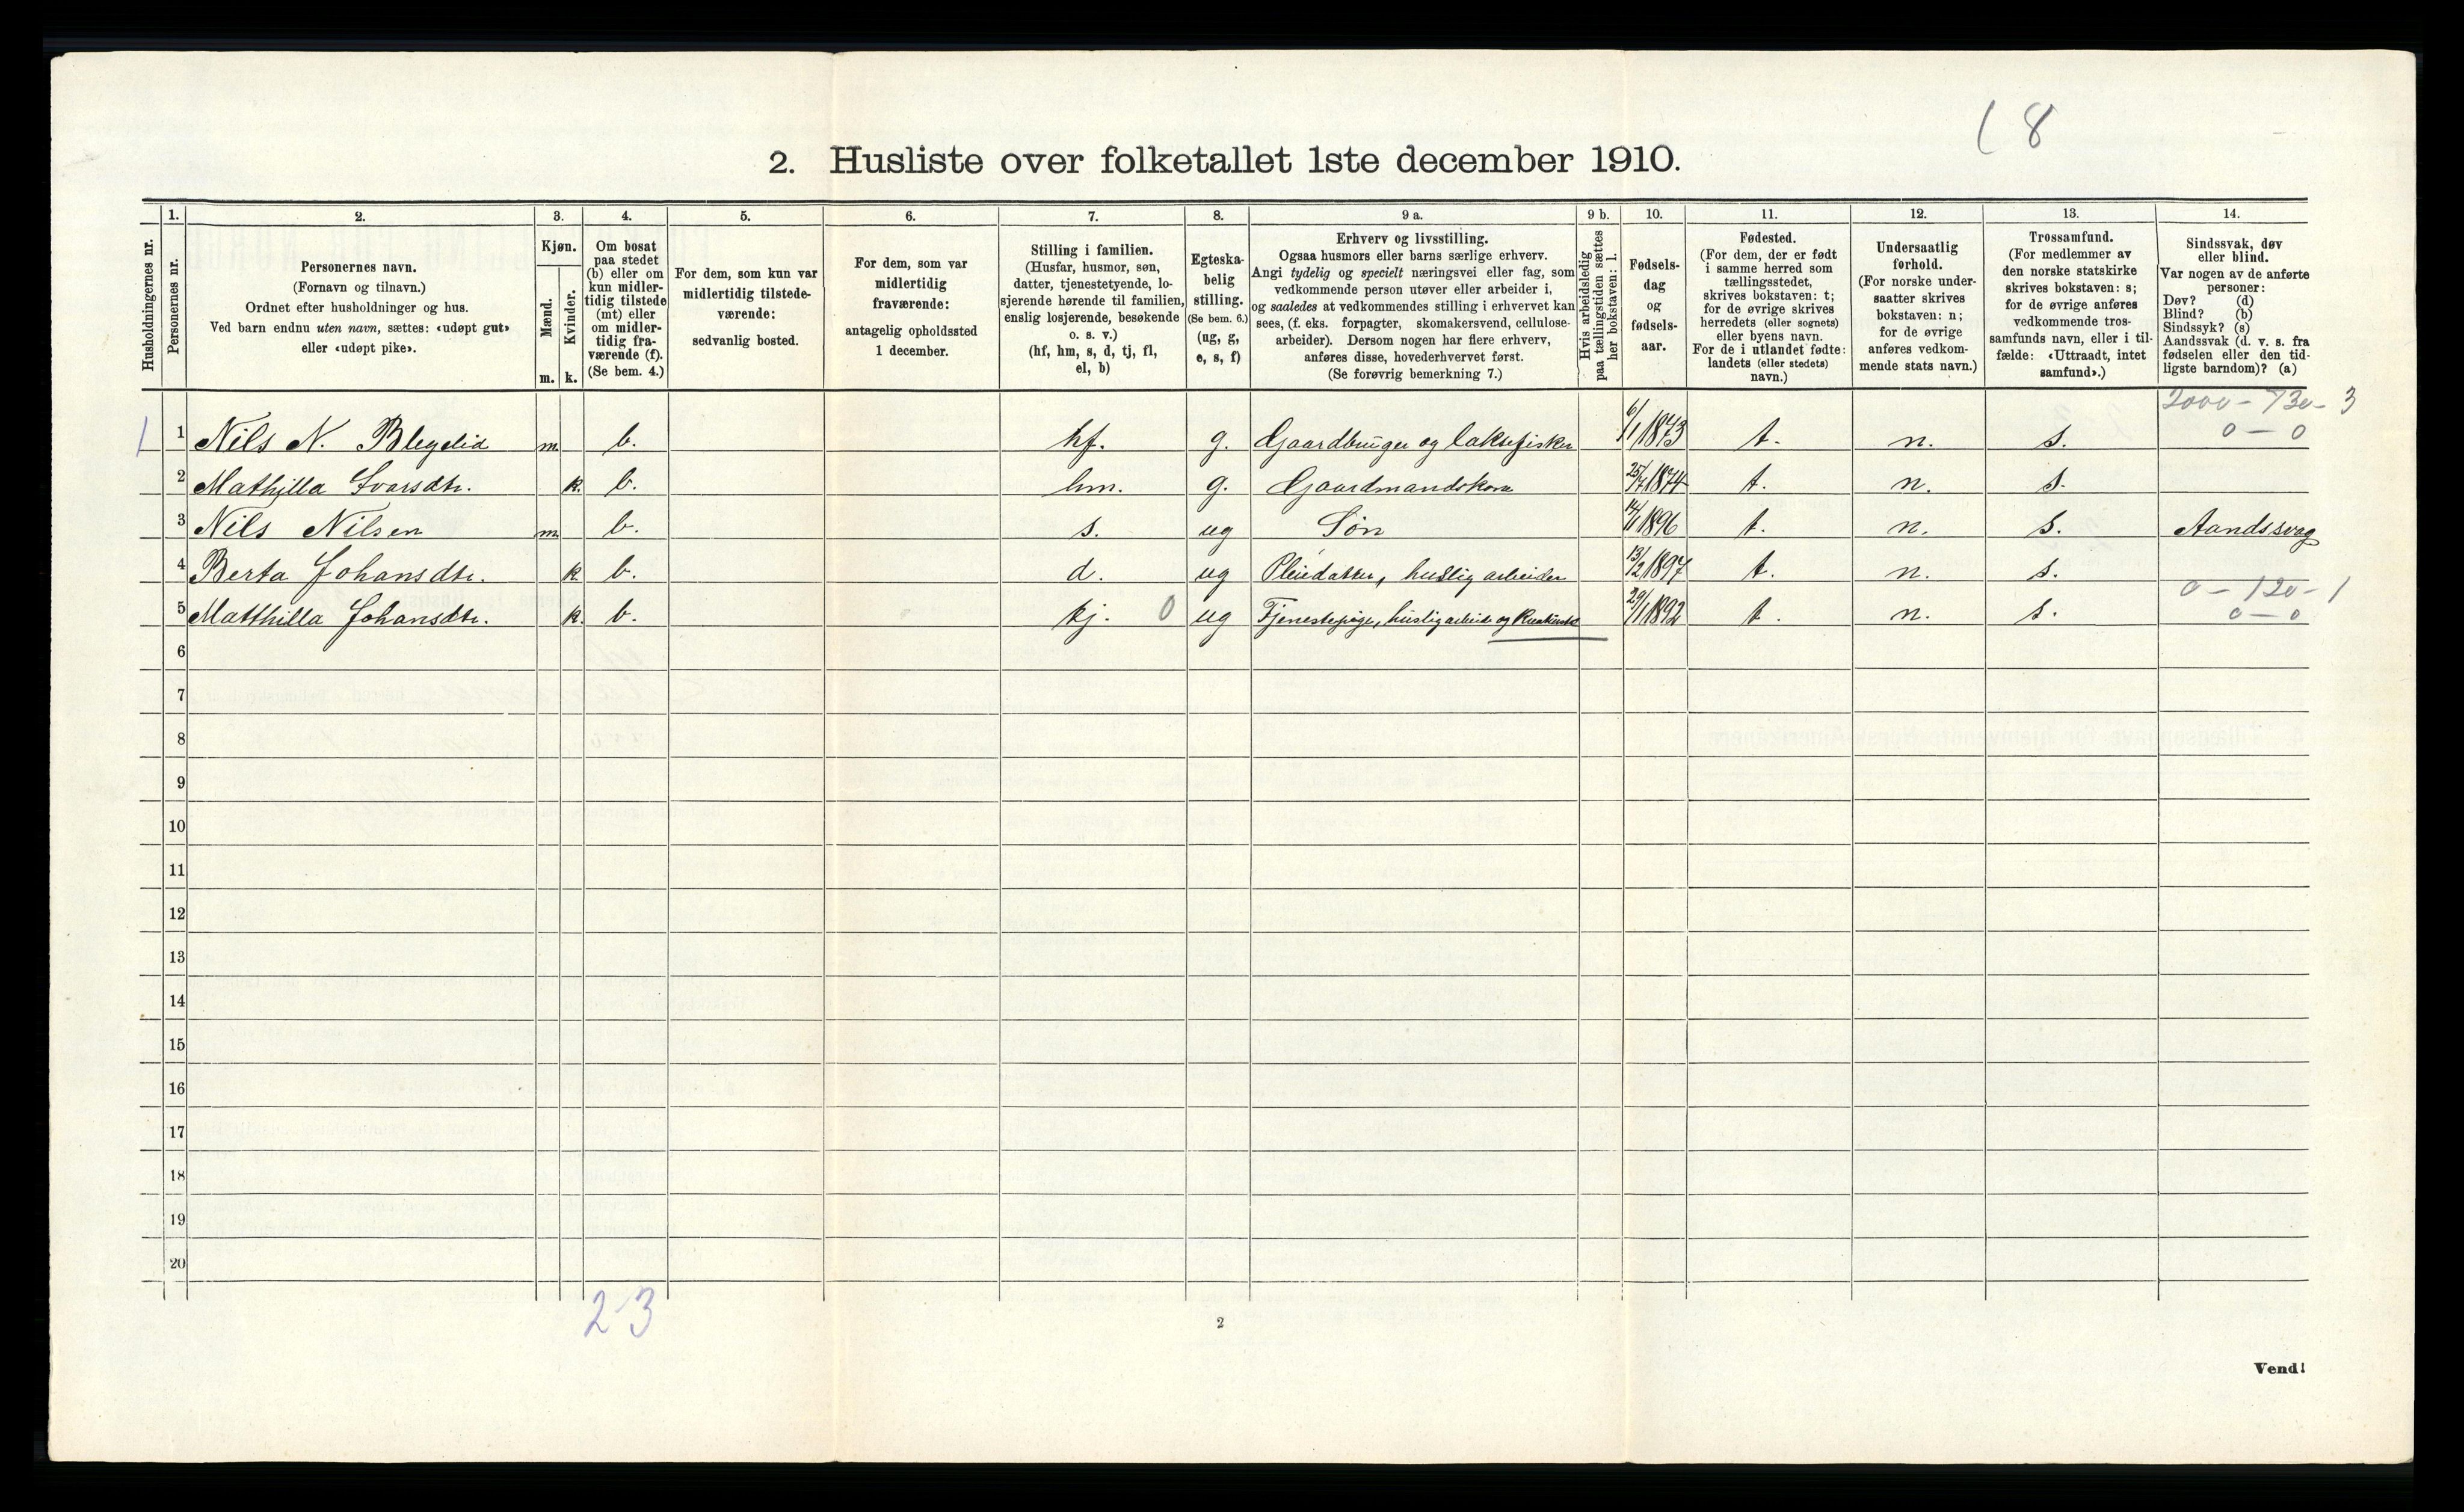 ( 8
2. Husliste over folketallet 1ste december 1910.
Husholdningernes nr.
1.
Personernes nr.
2.
Personernes navn.
(Fornavn og tilnavn.)
Ordnet efter husholdninger og hus.
Ved barn endnu uten navn, sættes: «udøpt gut»
eller «udøpt pike».
3.
Kjøn.
Mænd.
Kvinder.
m. k.
4.
Om bosat
paa stedet
(b) eller om
kun midler-
tidig tilstede
(mt) eller
om midler-
tidig fra-
værende (f).
(Se bem. 4.)
5.
For dem, som kun var
midlertidig tilstede-
værende:
sedvanlig bosted.
6.
For dem, som var
midlertidig
fraværende:
antagelig opholdssted
1 december.
7.
Stilling i familien.
(Husfar, husmor, søn,
datter, tjenestetyende, lo-
sjerende hørende til familien,
enslig losjerende, besøkende
o. s. v.)
(hf, hm, s, d, tj, fl,
el, b)
8.
Egteska-
belig
stilling.
(Se bem. 6.)
(ug, g,
e, s, f)
9 a.
Erhverv og livsstilling.
Ogsaa husmors eller barns særlige erhverv.
Angi tydelig og specielt næringsvei eller fag, som
vedkommende person utøver eller arbeider i,
og saaledes at vedkommendes stilling i erhvervet kan
sees, (f. eks. forpagter, skomakersvend, cellulose-
arbeider). Dersom nogen har flere erhverv,
anføres disse, hovederhvervet først.
(Se forøvrig bemerkning 7.)
9 b.
Hvis arbeidsledig
paa tællingstiden sættes
her bokstaven: l.
10.
Fødsels-
dag
og
fødsels-
aar.
11.
Fødested.
(For dem, der er født
i samme herred som
tællingsstedet,
skrives bokstaven: t;
for de øvrige skrives
herredets (eller sognets)
eller byens navn.
For de i utlandet fødte:
landets (eller stedets)
navn.)
12.
Undersaatlig
forhold.
(For norske under-
saatter skrives
bokstaven: n;
for de øvrige
anføres vedkom-
mende stats navn.)
13.
Trossamfund.
(For medlemmer av
den norske statskirke
skrives bokstaven: s;
for de øvrige anføres
vedkommende tros-
samfunds navn, eller i til-
fælde: «Uttraadt, intet
samfund».)
14.
Sindssvak, døv
eller blind.
Var nogen av de anførte
personer:
Døv? (d)
Blind? (b)
Sindssyk? (s)
Aandssvak (d. v. s. fra
fødselen eller den tid-
ligste barndom)? (a)
2000 - 730 - 3
1 1 Nils N. Blegelid m. b. hf. g. Gaardbruger og laksefisker 6/1 1873 t. n. s. 0 - 0
2 Mathilla Ivarsdtr. k. b. hm. g. Gaardmandskone 25/7 1874 t. n. s.
3 Nils Nilsen m. b. s. ug Søn 1896 t. n. s. Aandssvag
4 Berta Johansdtr. k. b. d. ug Pleiedatter, huslig arbeider 13/2 1897 t. n. s.
0 - 120 - 1
5 Matthilla Johansdtr. k. b. tj. 0 ug Tjenestepige, huslig arbeide og 29/1 1892 t. n. s. 0 - 0
6
7
8
9
10
11
12
13
14
15
16
17
18
19
20
2 3
2
Vend!